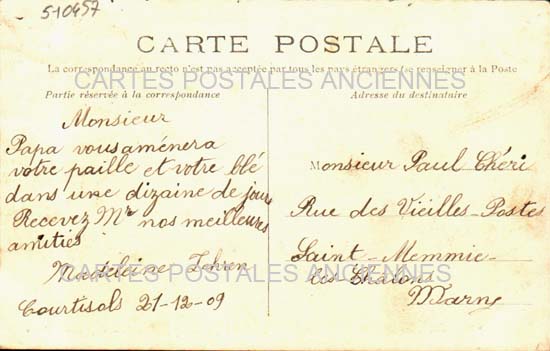 5-10457
CARTE POSTALE
La correspondance au recto n'est pas acceptée par tous les pays étrangers (se renseigner à la Poste
CARTES POSTALES ANCIENNES
Partie réservée à la correspondance
Adresse du destinataire
Monsieur
Papa vous aménera
votre paille et votre blé
dans une dizaine de jours
Recevez Mr nos meilleures
amitiés
Madeleine
Courtisols 21-12-09
Monsieur Paul Chéri
Rue des Vieilles-Postes
Saint-Memmie-
les-Chalons
Marne
CARTES POSTALES ANCIENNES